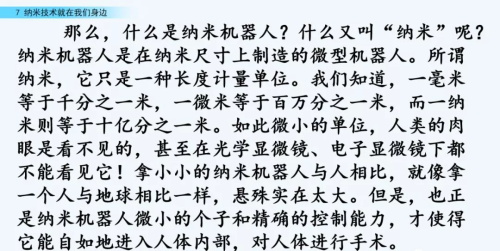 7 纳米技术就在我们身边
那么，什么是纳米机器人？什么又叫“纳米”呢？
纳米机器人是在纳米尺寸上制造的微型机器人。所谓
纳米，它只是一种长度计量单位。我们知道，一毫米
等于千分之一米，一微米等于百万分之一米，而一纳
米则等于十亿分之一米。如此微小的单位，人类的肉
眼是看不见的，甚至在光学显微镜、电子显微镜下都
不能看见它！拿小小的纳米机器人与人相比，就像拿
一个人与地球相比一样，悬殊实在太大。但是，也正
是纳米机器人微小的个子和精确的控制能力，才使得
它能自如地进入人体内部，对人体进行手术。